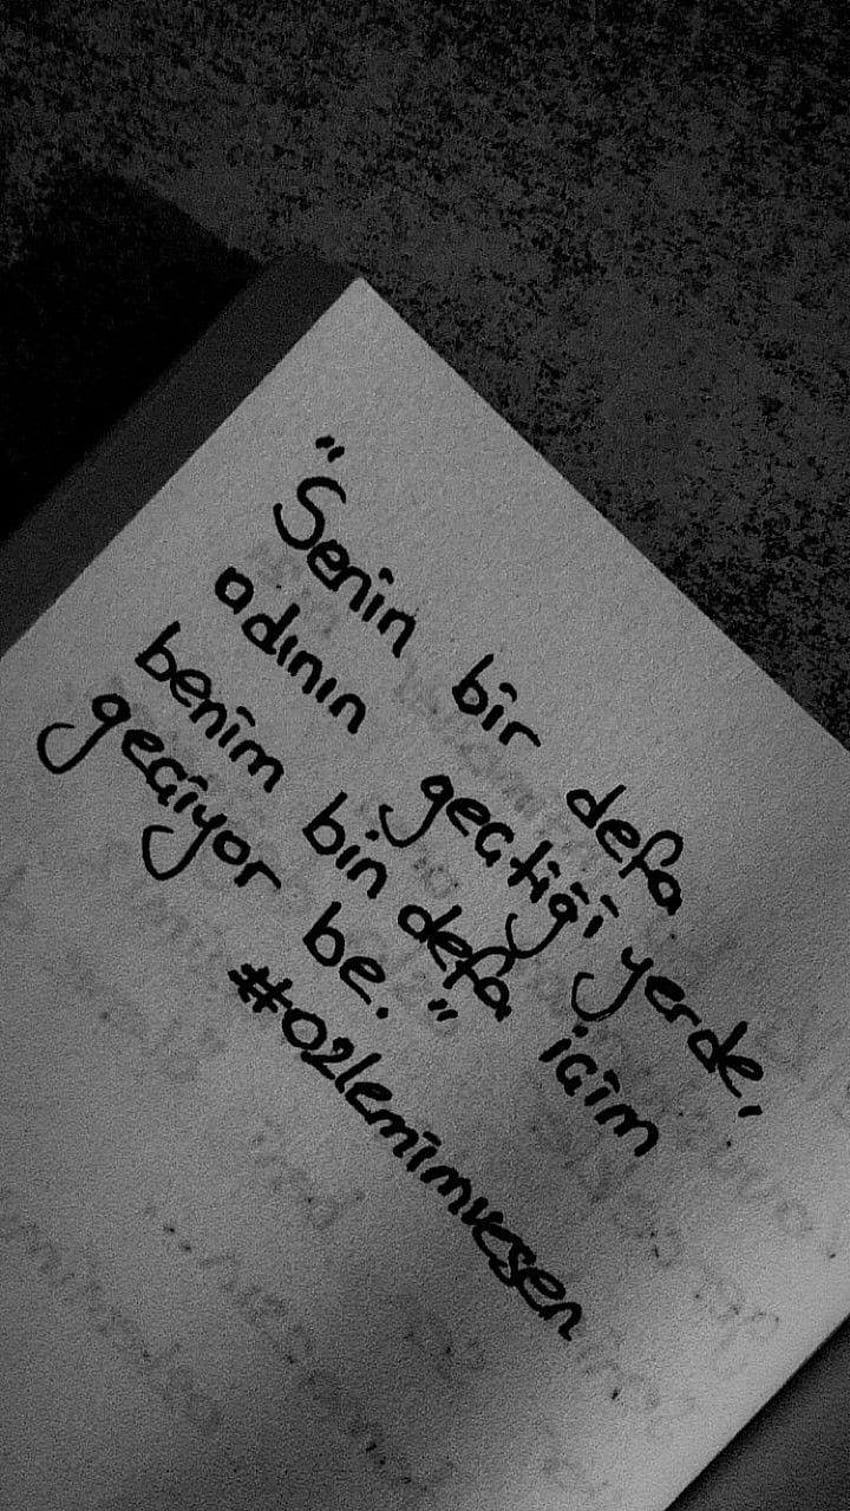 "Senin bir defa
adının geçtiği yerde,
benim bin defa içim
geçiyor be."
#02lemimvesen